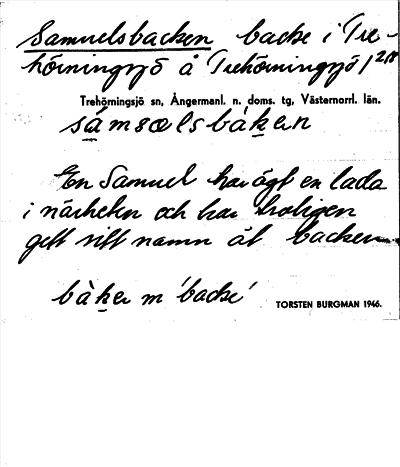 Samuelsbacken backe i Tre-
hörningsjö å Trehörningsjö 1 218
Trehörningsjö sn, Ångermanl. n. doms. tg, Västernorrl. län.
sámsœlsbàḵen
En Samuel har ägt en lada
i närheten och har troligen
gett sitt namn åt backen.
bàḵen m 'backe'
TORSTEN BURGMAN 1946.